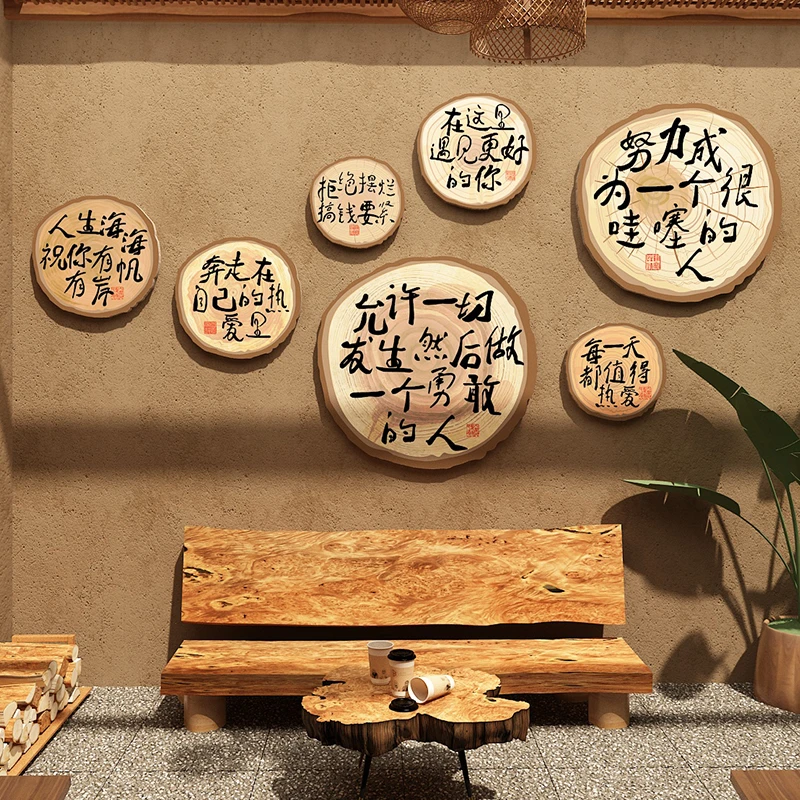 人生海海
祝你有帆
有岸
奔走在
自己的热
爱里
拒绝摆烂
搞钱要紧
在这里
遇见更好
的你
允许一切
发生然后做
一个勇敢
的人
努力成
为一个很
哇噻的
人
每一天
都值得
热爱